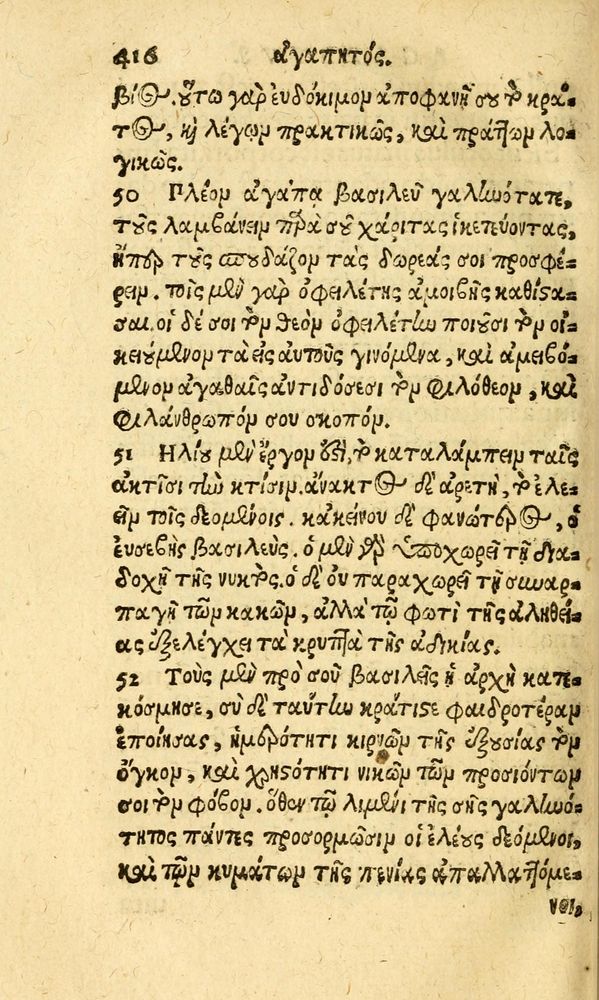 416 ἀγαπητός.
βίος. οὕτω γὰρ εὐδόκιμον ἀποφανῇ σου τὸ κρά-
τος, καὶ λέγων πρακτικῶς, καὶ πράττων λο-
γικῶς.
50 Πλέον ἀγάπα βασιλεῦ γαληνότατε,
τοὺς λαμβάνειν παρὰ σοῦ χάριτας ἱκετεύοντας,
ἤπερ τοὺς σπουδάζον τὰς δωρεάς σοι προσφέ-
ρειν. τοῖς μὲν γὰρ ὀφειλέτης ἀμοιβῆς καθίστα-
σαι. οἱ δέ σοι τὸν θεὸν ὀφειλέτην ποιοῦσι τὸν οἰ-
κειούμενον τὰ εἰς αὐτοὺς γινόμενα, καὶ ἀμειβό-
μενον ἀγαθαῖς ἀντιδόσεσι τὸν φιλόθεον, καὶ
φιλάνθρωπόν σου σκοπόν.
51 Ηλίου μὲν ἔργον ἐστὶ, τὸ καταλάμπειν ταῖς
ἀκτῖσι τὴν κτίσιν. ἄνακτος δὲ ἀρετὴ, τὸ ἐλε-
εῖν τοῖς δεομένοις. κἀκείνου δὲ φανώτερος, ὁ
εὐσεβὴς βασιλεύς. ὁ μὲν γὰρ ὑποχωρεῖ τῇ δια-
δοχῇ τῆς νυκτός. ὁ δὲ οὐ παραχωρεῖ τῇ συναρ-
παγῇ τῶν κακῶν, ἀλλὰ τῷ φωτὶ τῆς ἀληθεί-
ας ἐξελέγχει τὰ κρυπτὰ τῆς ἀδικίας.
52 Τοὺς μὲν πρὸ σοῦ βασιλεῖς ἡ ἀρχὴ κατε-
κόσμησε, σὺ δὲ ταύτην κράτιστε φαιδροτέραν
ἐποίησας, ἡμερότητι κιρνῶν τῆς ἐξουσίας τὸν
ὄγκον, καὶ χρηστότητι νικῶν τῶν προσιόντων
σοι τὸν φόβον. ὅθεν τῷ λιμένι τῆς σῆς γαληνό-
τητος πάντες προσορμῶσιν οἱ ἐλέους δεόμενοι,
καὶ τῶν κυμάτων τῆς πενίας ἀπαλλαττόμε-
νοι,